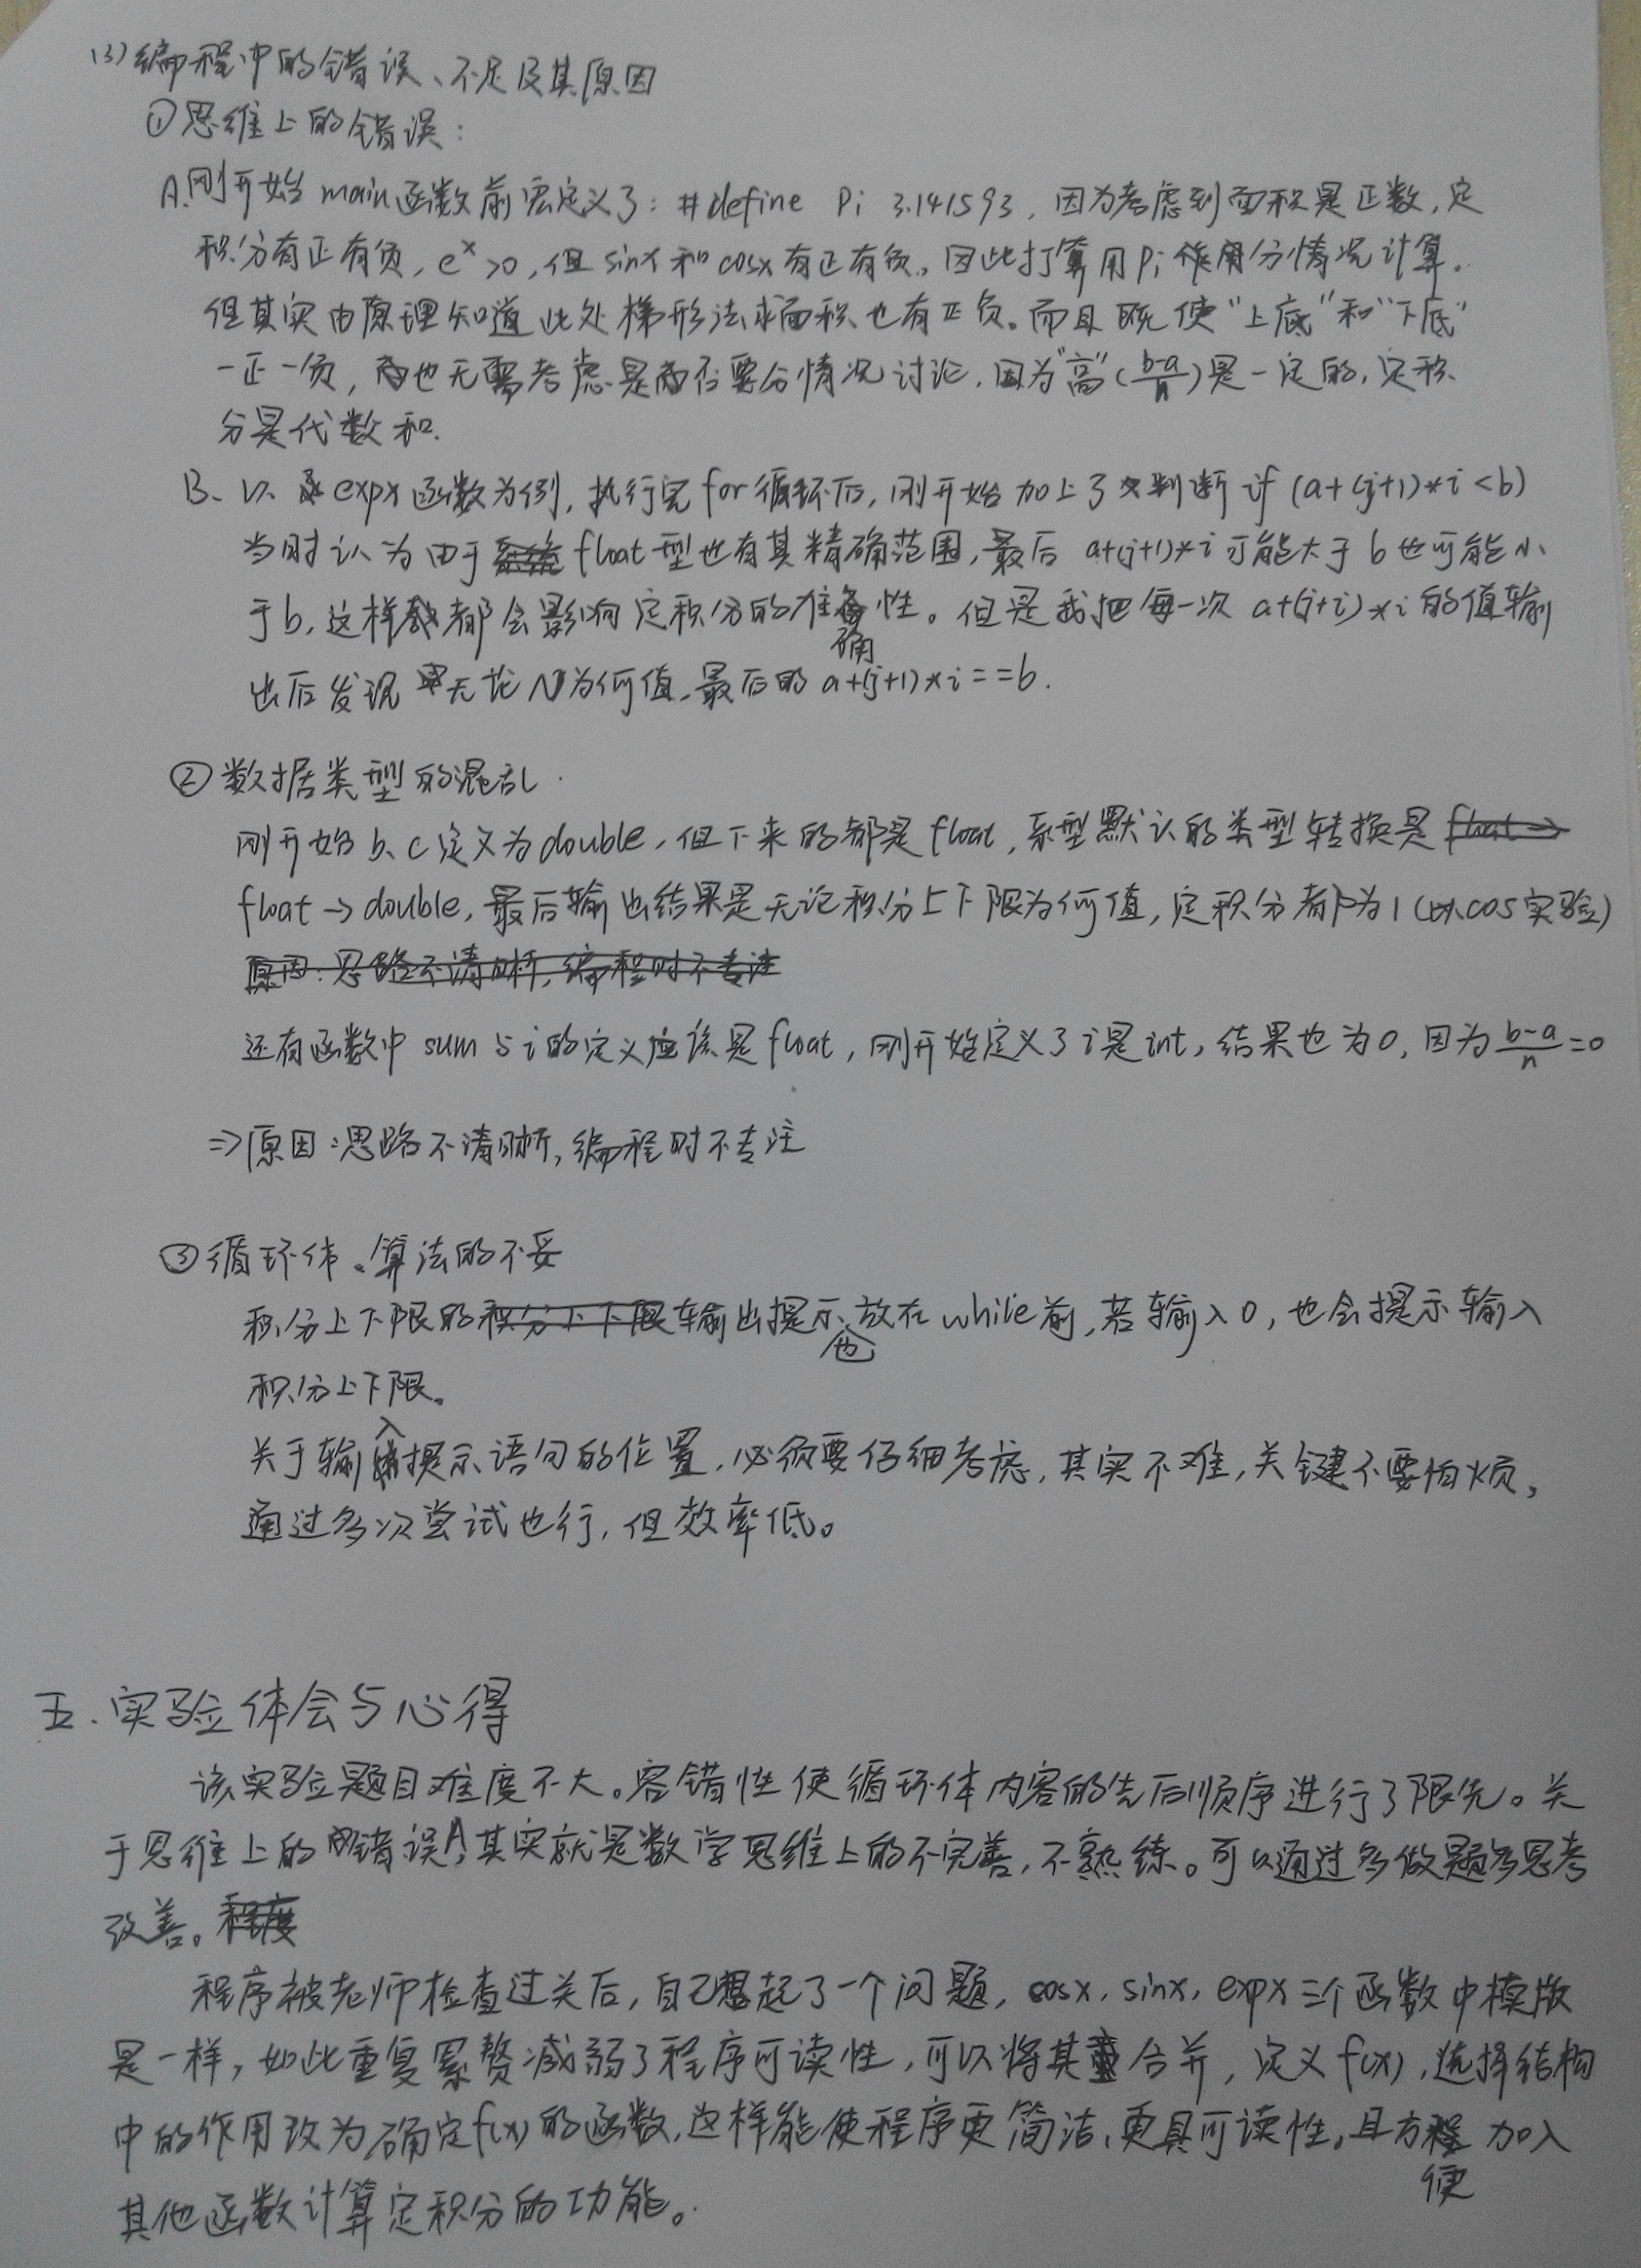 (3)编程中的错误、不足及其原因
①思维上的错误：
A.刚开始main函数前宏定义了：#define Pi 3.141593，因为考虑到面积是正数，定
积分有正有负，e^x>0，但sinx和cosx有正有负。因此打算用Pi作用分情况计算。
但其实由原理知道此处梯形法求面积也有正负。而且既使“上底”和“下底”
一正一负，也无需考虑是否要分情况讨论，因为“高”(b-a/n)是一定的，定积
分是代数和.
B、以expx函数为例，执行完for循环后，刚开始加上了判断if (a+(j+1)*i<b)
当时认为由于float型也有其精确范围，最后a+(j+1)*i可能大于b也可能小
于b，这样都会影响定积分的准确性。但是我把每一次a+(j+i)*i的值输
出后发现无论N为何值，最后的a+(j+1)*i==b.
②数据类型的混乱.
刚开始b、c定义为double，但下来的都是float，系型默认的类型转换是
float→double，最后输出结果是无论积分上下限为何值，定积分都为1(以cos实验)
原因：思路不清晰，编程时不专注
还有函数中sum与i的定义应该是float，刚开始定义了i是int，结果也为0，因为b-a/n=0
⇒原因：思路不清晰，编程时不专注
③循环体、算法的不妥
积分上下限的输出提示也放在while前，若输入0，也会提示输入
积分上下限。
关于输入提示语句的位置，必须要仔细考虑，其实不难，关键不要怕烦，
通过多次尝试也行，但效率低。
五.实验体会与心得
该实验题目难度不大。容错性使循环体内容的先后顺序进行了限先。关
于思维上的错误A，其实就是数学思维上的不完善，不熟练。可以通过多做题多思考
改善。程度
程序被老师检查过关后，自己想起了一个问题，cosx，sinx，expx三个函数中模版
是一样，如此重复累赘减弱了程序可读性，可以将其合并，定义f(x)，选择结构
中的作用改为确定f(x)的函数，这样能使程序更简洁、更具可读性，且方便加入
其他函数计算定积分的功能。